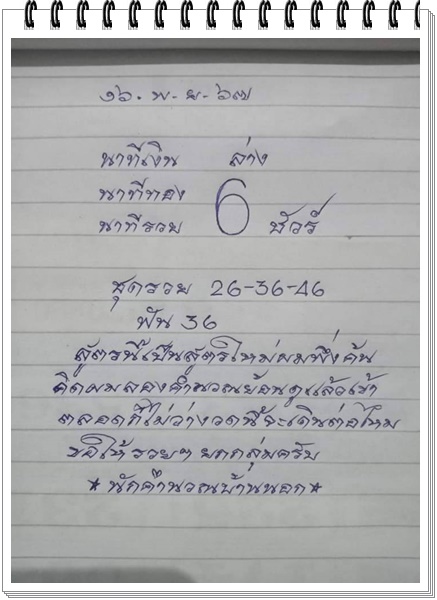 ๑๖. พ. ย. ๖๗
นาทีเงิน ล่าง
นาทีทอง 6
นาทีรวย ชัวร์
ชุดรวย 26-36-46
ฟัน 36
สูตรนี้เป็นสูตรใหม่ผมพึ่งค้น
คิดผมลองคำนวณย้อนดูแล้วเข้า
ตลอดก็ไม่ว่างวดนี้จะเดินต่อไหม
ขอให้รวยๆ ยกกลุ่มครับ
★นักคำนวณบ้านนอก★